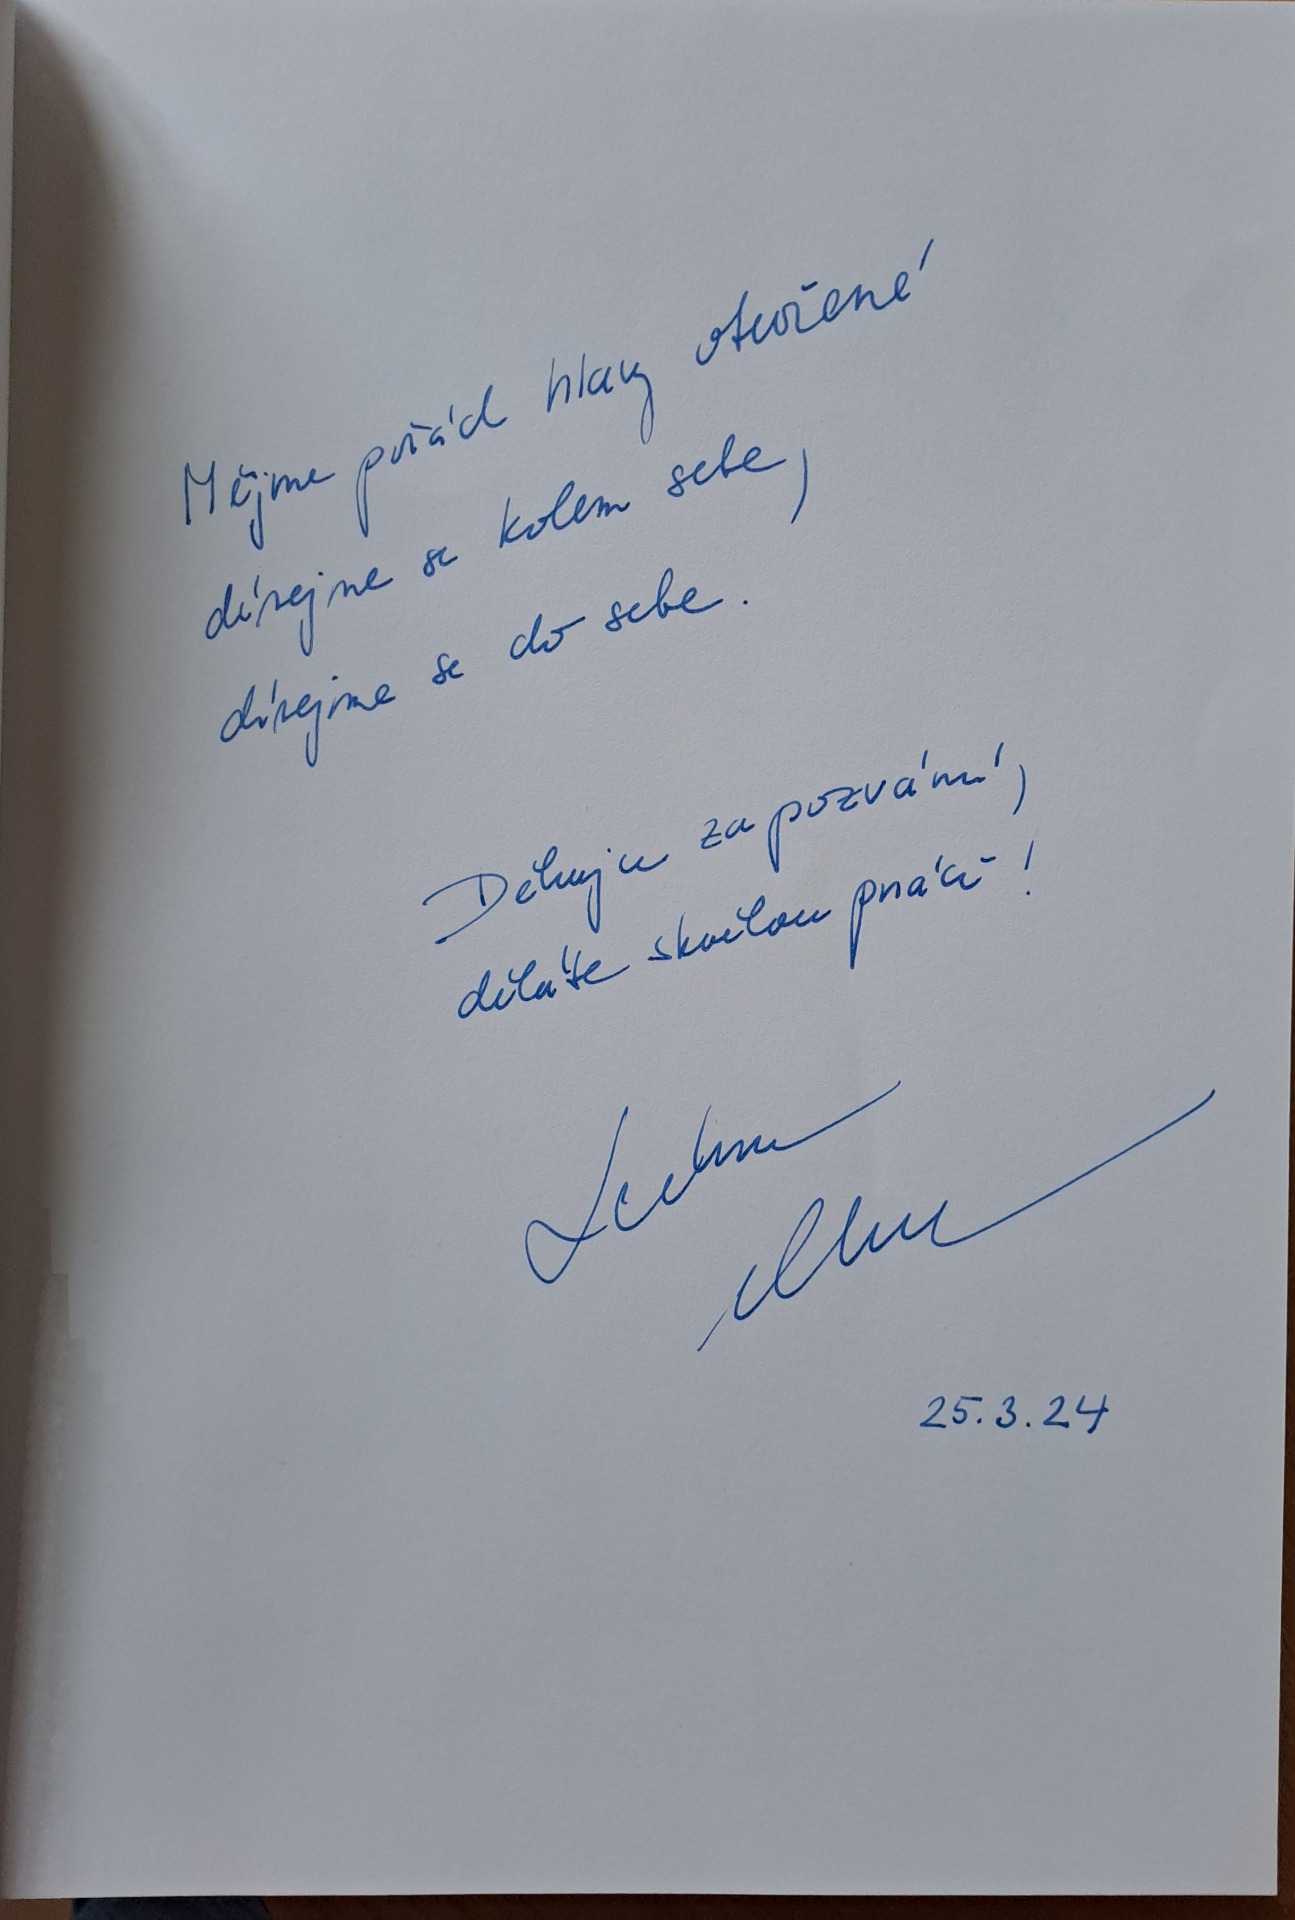 Mějme pořád hlavy otevřené
dívejme se kolem sebe,
dívejme se do sebe.
Děkuju za pozvání,
děláte skvělou práci!
25.3.24